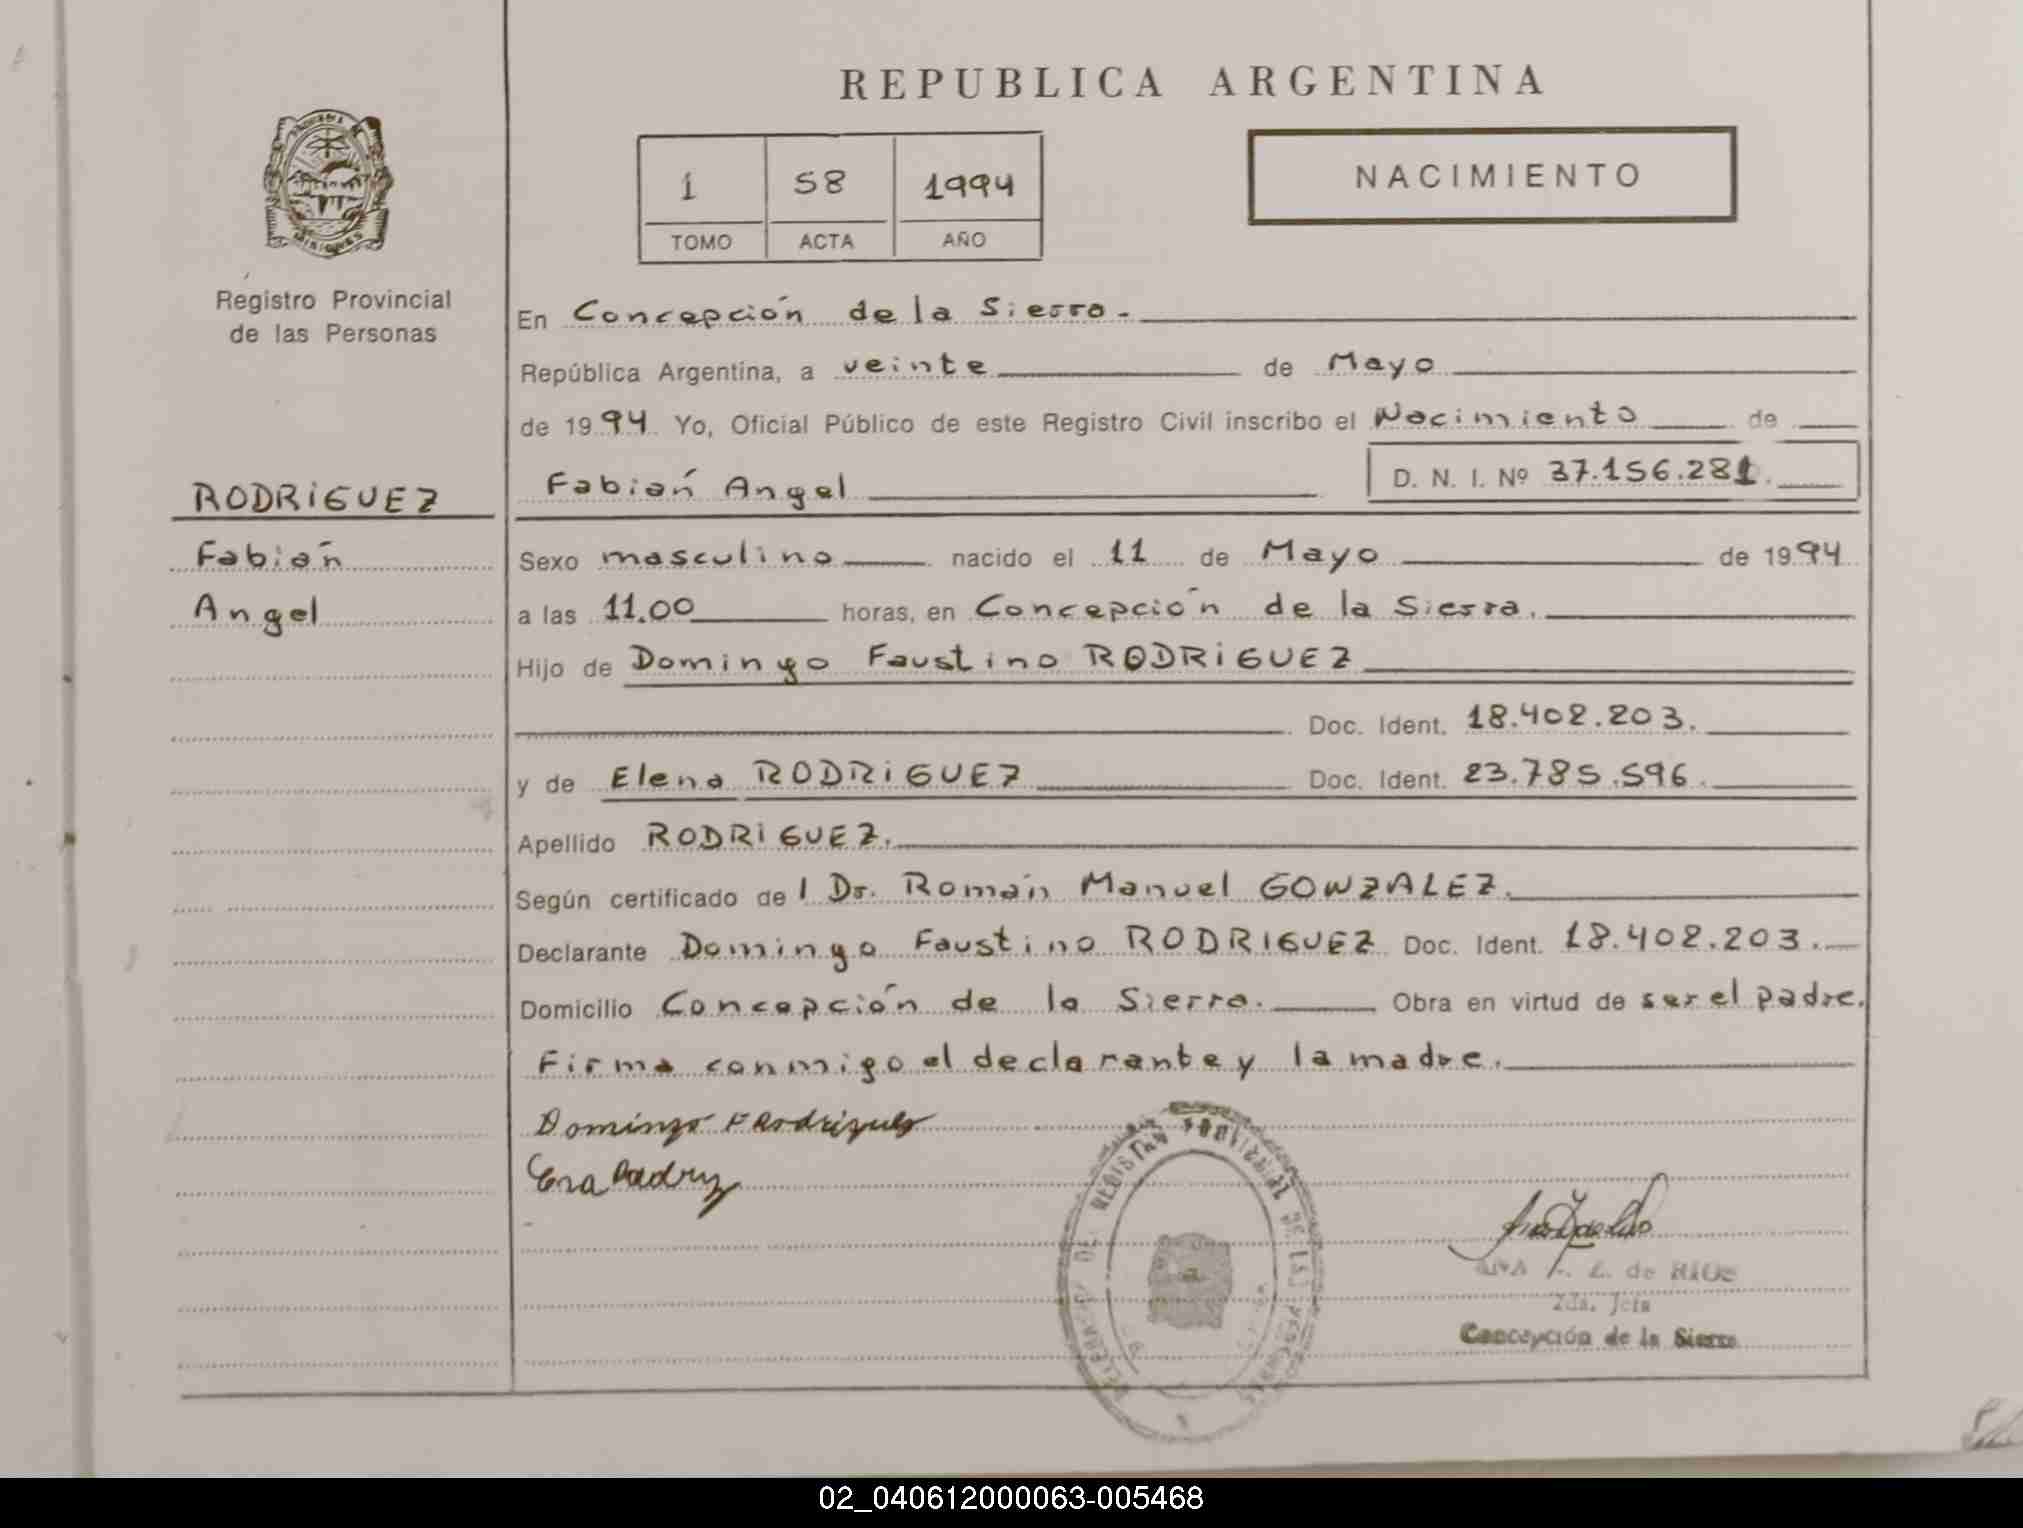 REPUBLICA ARGENTINA
PROVINCIA DE
MISIONES
1 58 1994
TOMO ACTA AÑO
NACIMIENTO
Registro Provincial
de las Personas
RODRIGUEZ
Fabián
Angel
En Concepción de la Sierra.
República Argentina, a veinte de Mayo
de 1994 Yo, Oficial Público de este Registro Civil inscribo el Nacimiento de
Fabián Angel D. N. I. Nº 37.156.281.
Sexo masculino nacido el 11 de Mayo de 1994
a las 11.00 horas, en Concepción de la Sierra.
Hijo de Domingo Faustino RODRIGUEZ
Doc. Ident. 18.402.203.
y de Elena RODRIGUEZ Doc. Ident. 23.785.596.
Apellido RODRIGUEZ.
Según certificado de l Dr. Román Manuel GONZALEZ.
Declarante Domingo Faustino RODRIGUEZ Doc. Ident. 18.402.203.
Domicilio Concepción de la Sierra. Obra en virtud de ser el padre.
Firma conmigo el declarante y la madre.
Domingo F Rodriguez
REGISTRO PROVINCIAL DE LAS PERSONAS
ANA de RIOS
2da. Jefa
Concepción de la Sierra
02_040612000063-005468